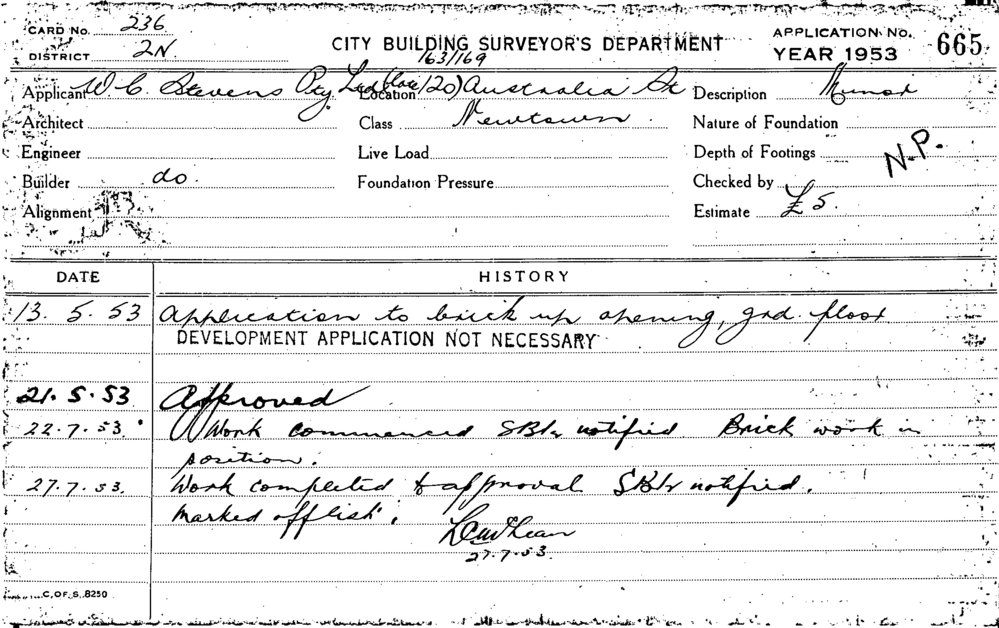 CARD No. 236
DISTRICT 2N
CITY BUILDING SURVEYOR'S DEPARTMENT
APPLICATION No. 665
YEAR 1953
163/169
Applicant W. C. Stevens Pty Ltd Location (120) Australia St Description Minor
Architect Class Newtown. Nature of Foundation
Engineer Live Load Depth of Footings N.P.
Builder do. Foundation Pressure Checked by
Alignment Estimate £5.
DATE HISTORY
13. 5. 53 Application to brick up opening, grd. floor
DEVELOPMENT APPLICATION NOT NECESSARY
21. 5. 53 Approved
22. 7. 53. Work commenced notified Brick work in
position.
27. 7. 53. Work completed to approval notified.
Marked off list.
27. 7. 53.
C. OF S. 8250